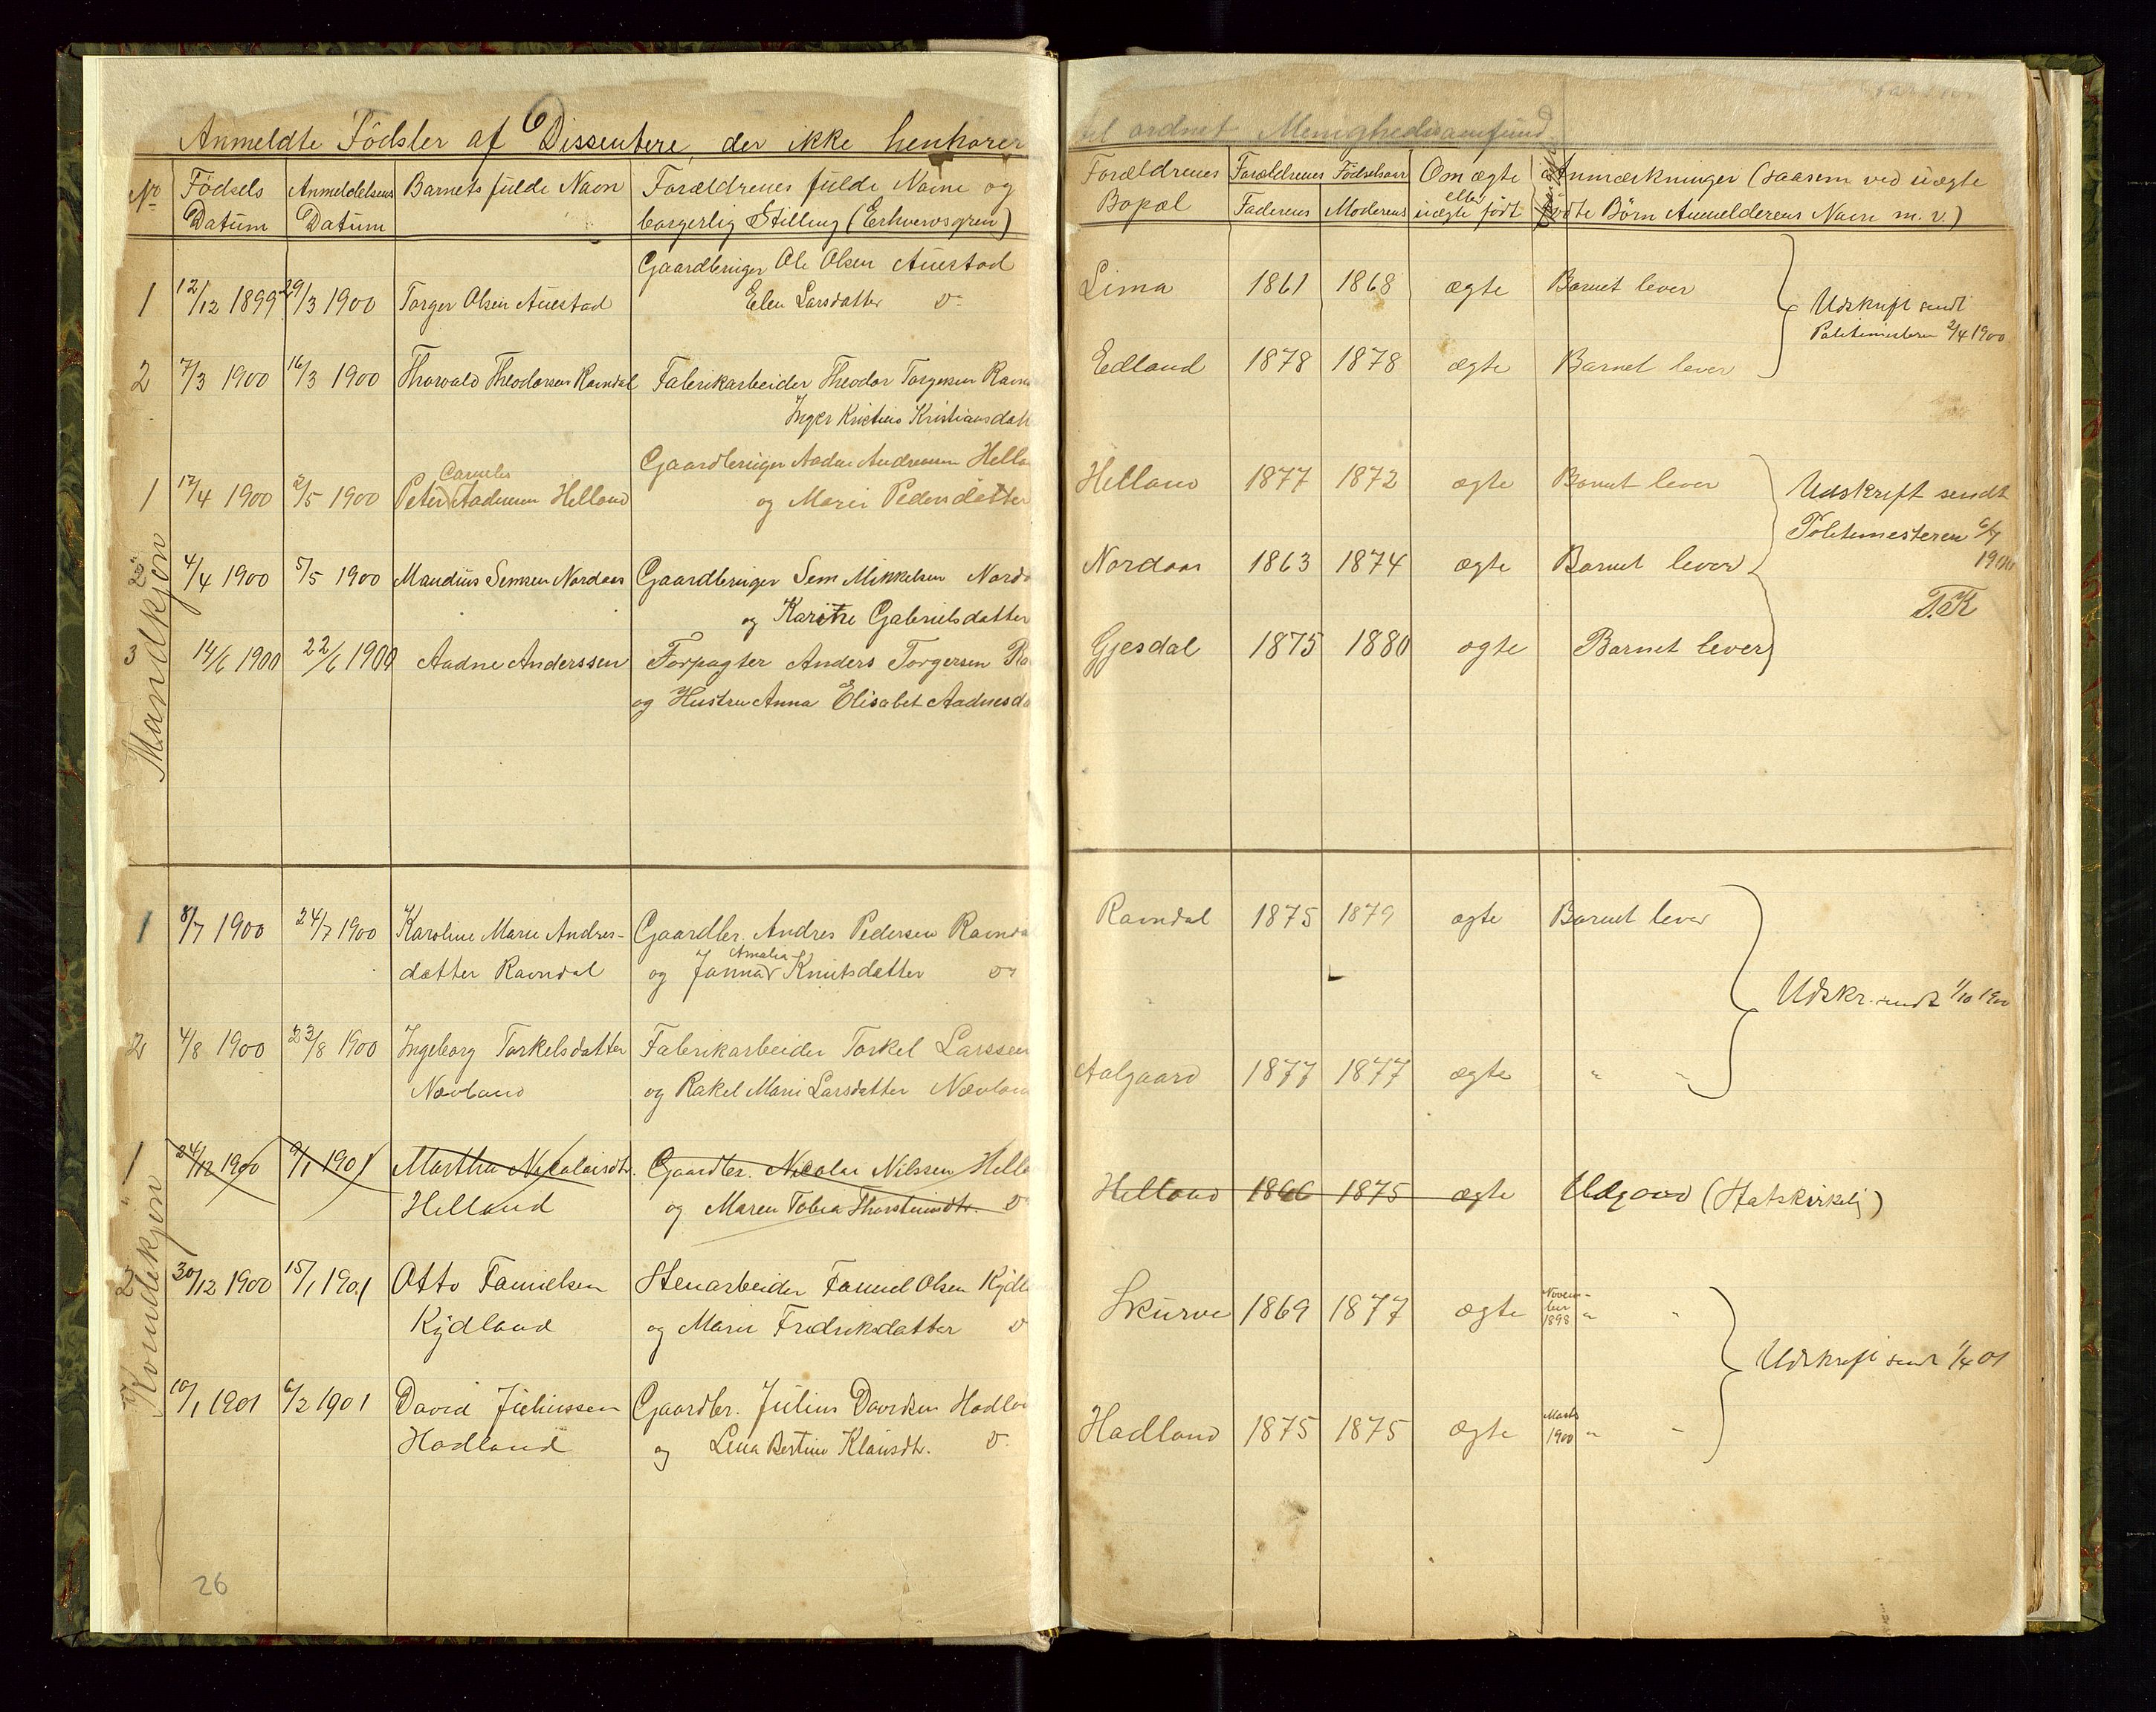 Anmeldte Födsler af Dissentere, der ikke henhører
No Födsels Datum Anmeldelsens Datum Barnets fulde Navn Forældrenes fulde Navne og
borgerlig Stilling (Erhvervsgren)
Gaardbruger Ole Olsen Auestad
1 12/12 1899 29/3 1900 Torger Olsen Auestad Elen Larsdatter
2 7/3 1900 16/3 1900 Thorvald Theodorsen Ravndal Fabrikarbeider Theodor Torgersen Ravn
Inger Kristine Kristiansdatt
Gaardbruger Aadne Andreassen Hella
Cornelis
1 12/4 1900 2/5 1900 Peter Aadnesen Helland og Marie Pedersdatter
2 4/4 1900 5/5 1900 Maudius Semsen Nordaas Gaardbruger Sem Mikkelsen Norda
og Karine Gabrielsdatter
3 14/6 1900 22/6 1900 Aadne Anderssen Forpagter Anders Torgersen Ra
og Hustru Anna Elisabet Aadnesda
Mandkjøn
1 8/7 1900 24/7 1900 Karoline Marie Andres- Gaardbr. Andres Pedersen Ravnda
Amalia
datter Ravndal og Janna Knutsdatter
2 4/8 1900 23/8 1900 Ingeborg Torkelsdatter Fabrikarbeider Torkel Larssen
Nævland og Rakel Marie Larsdatter Nævlan
1 24/12 1900 9/1 1901 Martha Nicolaisdtr. Gaardbr. Nicolai Nilssen Hella
Helland og Maren Tobea Thorsteinsdtr.
2 30/12 1900 15/1 1901 Otto Famielsen Stenarbeider Famiel Olsen Kydla
Kydland og Marie Fredriksdatter
10/1 1901 6/2 1901 David Juliussen Gaardbr. Julius Davidsen Hadlan
Hadland og Lena Bertine Klausdtr.
Kvindekjøn
26
til ordnet Menighedssamfund.
Forældrenes Bopæl Forældrenes Födselsaar Om ægte Anmærkninger (saasom ved uægte
Faderens Moderens eller uægte født fødte Børn Anmelderens Navn m. v.)
Lima 1861 1868 ægte Barnet lever
Udskrift sendt
Politimesteren 2/4 1900
Edland 1878 1878 ægte Barnet lever
Helland 1877 1872 ægte Barnet lever
Udskrift sendt
Politimesteren 6/7
1900
Nordaas 1863 1874 ægte Barnet lever
T.K
Gjesdal 1875 1880 ægte Barnet lever
Ravndal 1875 1879 ægte Barnet lever
Udskr. sendt 1/10 1900
Aalgaard 1877 1877 ægte " "
Helland 1866 1875 ægte Udgaar (Statskirkelig)
Skurve 1869 1877 ægte November 1898 " "
Udskrift sendt 1/4 01
Hadland 1875 1875 ægte Marts 1900 " "